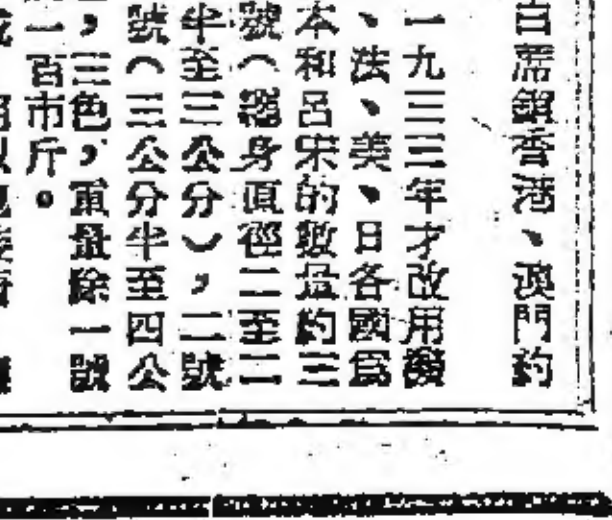 白蓆銷香港、澳門約
一九三三年才改用
、法、美、日各國爲
本和呂宋的數量約三
號（器身直徑二至二
半至三公分），二號
號（三公分半至四公
，三色，重量除一號
一百市斤。